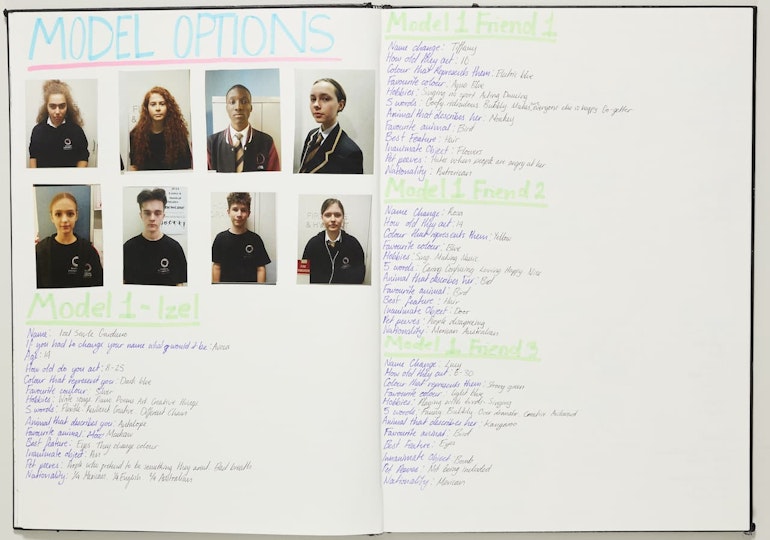 MODEL OPTIONS
Model 1 - Izel
Name:
If you had to change your name what would it be: Aurora
Age: 14
How old do you act: 11-25
Colour that represent you: Dark blue
Favourite colour: Silver
Hobbies: Write songs Poems Art Creative things
5 words: Flexible Resilient Creative Different
Animal that describes you: Antelope
Favourite animal:
Best feature: Eyes They change colour
Inanimate object: Pen
Pet peeves: People who pretend to be something they arent bad breath
Nationality: 1/4 Mexican 1/4 English 1/4 Australian
Model 1 Friend 1
Name change: Tiffany
How old they act: 10
Colour that represents them: Electric blue
Favourite colour: Aqua Blue
Hobbies: Singing Acting Dancing
5 words: Goofy ridiculous Bubbly Makes everyone else is happy Go-getter
Animal that describes her: Monkey
Favourite animal: Bird
Best Feature: Hair
Inanimate Object: Flowers
Pet peeves: Hates when people are angry at her
Nationality:
Model 1 Friend 2
Name Change: Rosa
How old they act: 19
Colour that represents them: Yellow
Favourite colour: Blue
Hobbies: Sing Making Music
5 words: Caring Confusing Loving Happy Nice
Animal that describes her: Bird
Favourite animal: Bird
Best feature: Hair
Inanimate Object: Door
Pet peeves: People disagreeing
Nationality: Mexican Australian
Model 1 Friend 3
Name Change: Lucy
How old they act: 8-30
Colour that represents them: Strong green
Favourite colour: light blue
Hobbies: Playing Singing
5 words: Funny Bubbly Over dramatic Creative Awkward
Animal that describes her: Kangaroo
Favourite animal: Bird
Best feature: Eyes
Inanimate Object:
Pet Peeves: Not being included
Nationality: Mexican